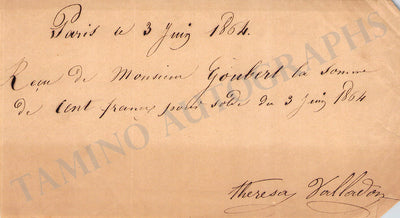 Paris le 3 Juin 1864.
Reçu de Monsieur Goubert la somme
de Cent francs pour solde du 3 Juin 1864
Theresa Valladon
TAMINO AUTOGRAPHS